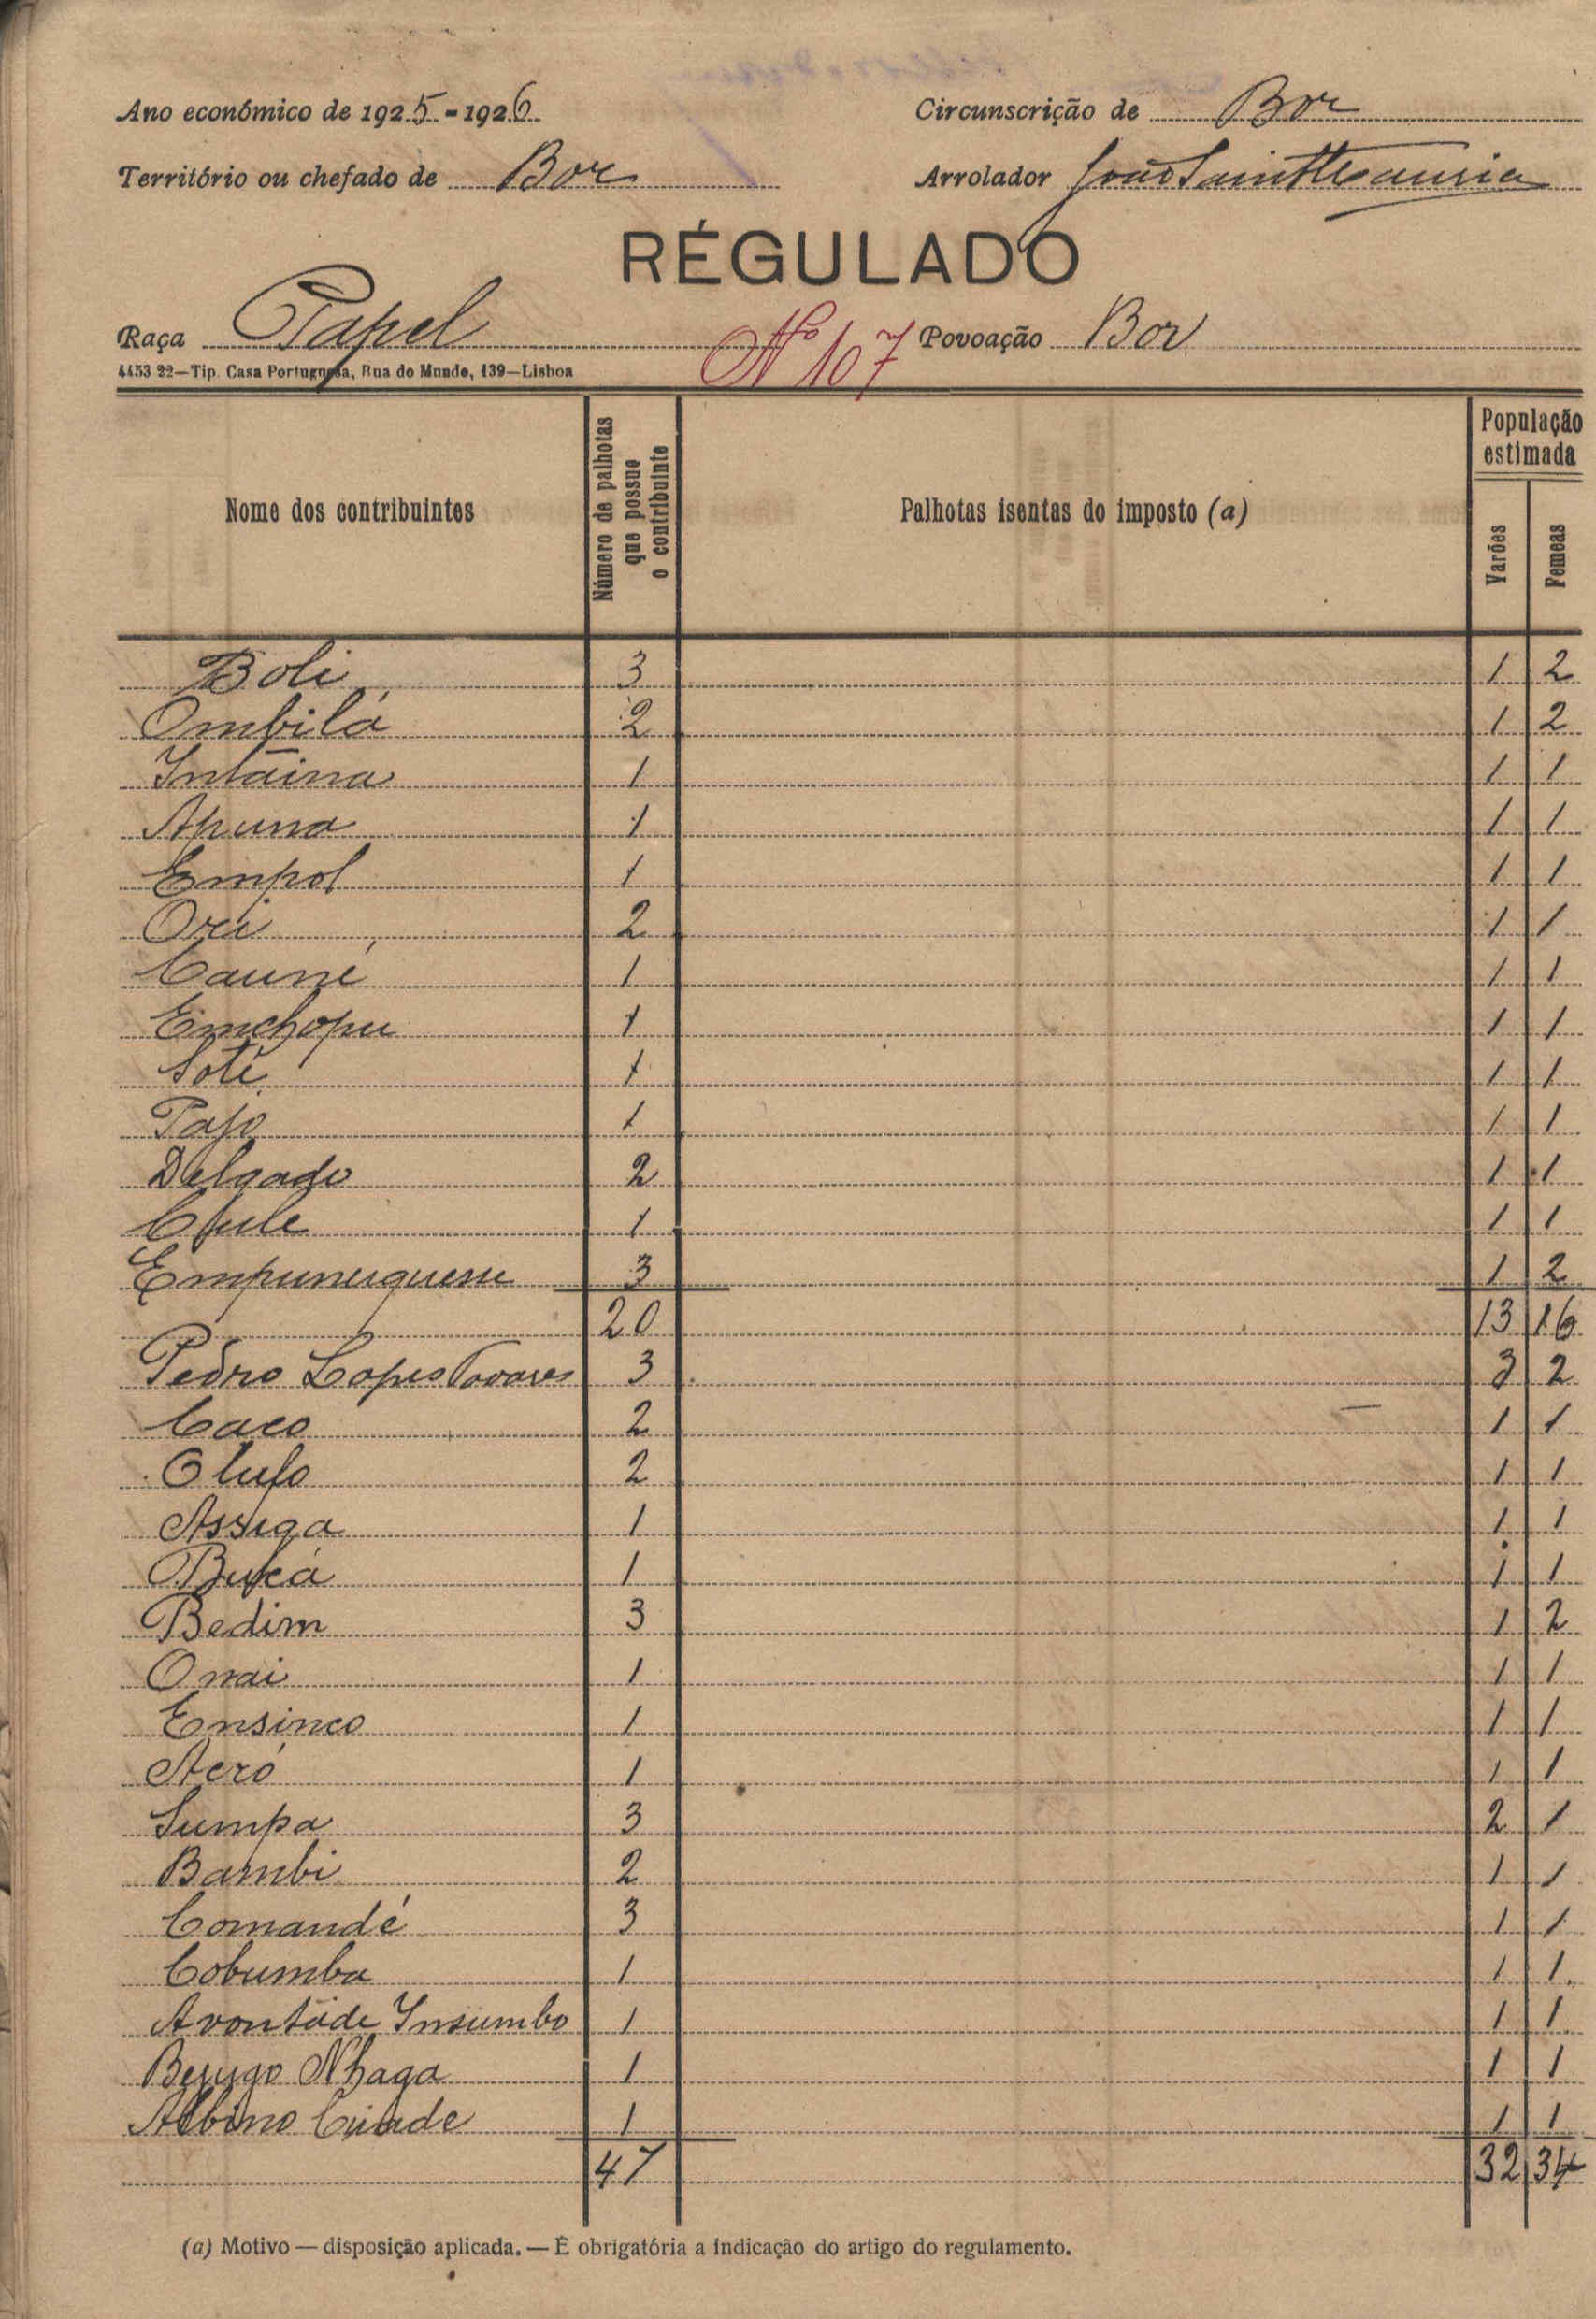 Ano económico de 1925-1926 Circunscrição de Bor
Território ou chefado de Bor Arrolador João
RÉGULADO
Raça Papel Nº 107 Povoação Bor
4453 22—Tip. Casa Portuguesa, Rua do Mundo, 139—Lisboa
Nome dos contribuintes Número de palhotas que possue o contribuinte Palhotas isentas do imposto (a) População estimada Varões Femeas
Boli 3 1 2
Ombilá 2 1 2
Intáina 1 1 1
Apuna 1 1 1
Empol 1 1 1
Orá 2 1 1
Cauné 1 1 1
Emchopu 1 1 1
Soté 1 1 1
Pajo 1 1 1
Delgado 2 1 1
1 1 1
3 1 2
20 13 16
Pedro Lopes Tavares 3 3 2
Caco 2 1 1
Olufo 2 1 1
Assiga 1 1 1
1 1 1
Bedim 3 1 2
Onai 1 1 1
Ensinco 1 1 1
Acró 1 1 1
Sumpa 3 2 1
Bambi 2 1 1
Comandé 3 1 1
Cobumba 1 1 1
Avontade Insumbo 1 1 1
Nhaga 1 1 1
Albino 1 1 1
47 32 34
(a) Motivo — disposição aplicada. — É obrigatória a indicação do artigo do regulamento.